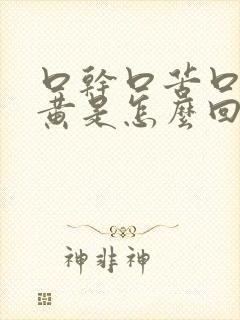 口幹口苦口
黃是怎麼回
神非神